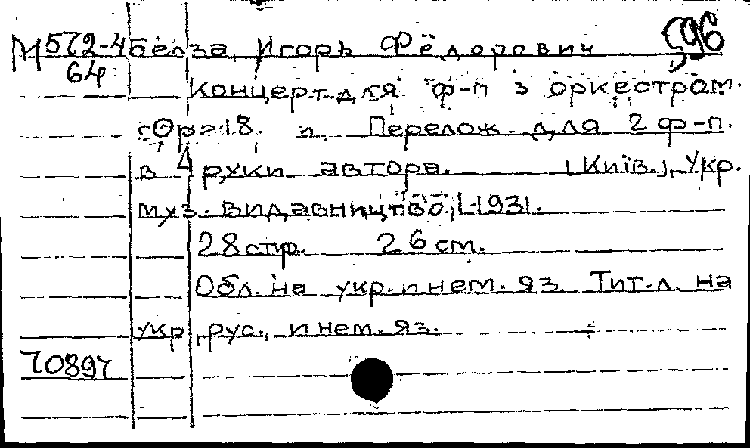 М 572-4 Бэлза, Игорь Фёдорович 596
64
Концерт для ф-п з оркестром.
Ор. 18. Перелож. для 2 ф-п.
в 4 руки автора. [Київ.], Укр.
муз. видавництво, [-1931.
28 стр. 26 см.
Обл. на укр. и нем. яз. Тит. л. на
укр., рус., и нем. яз.
70897